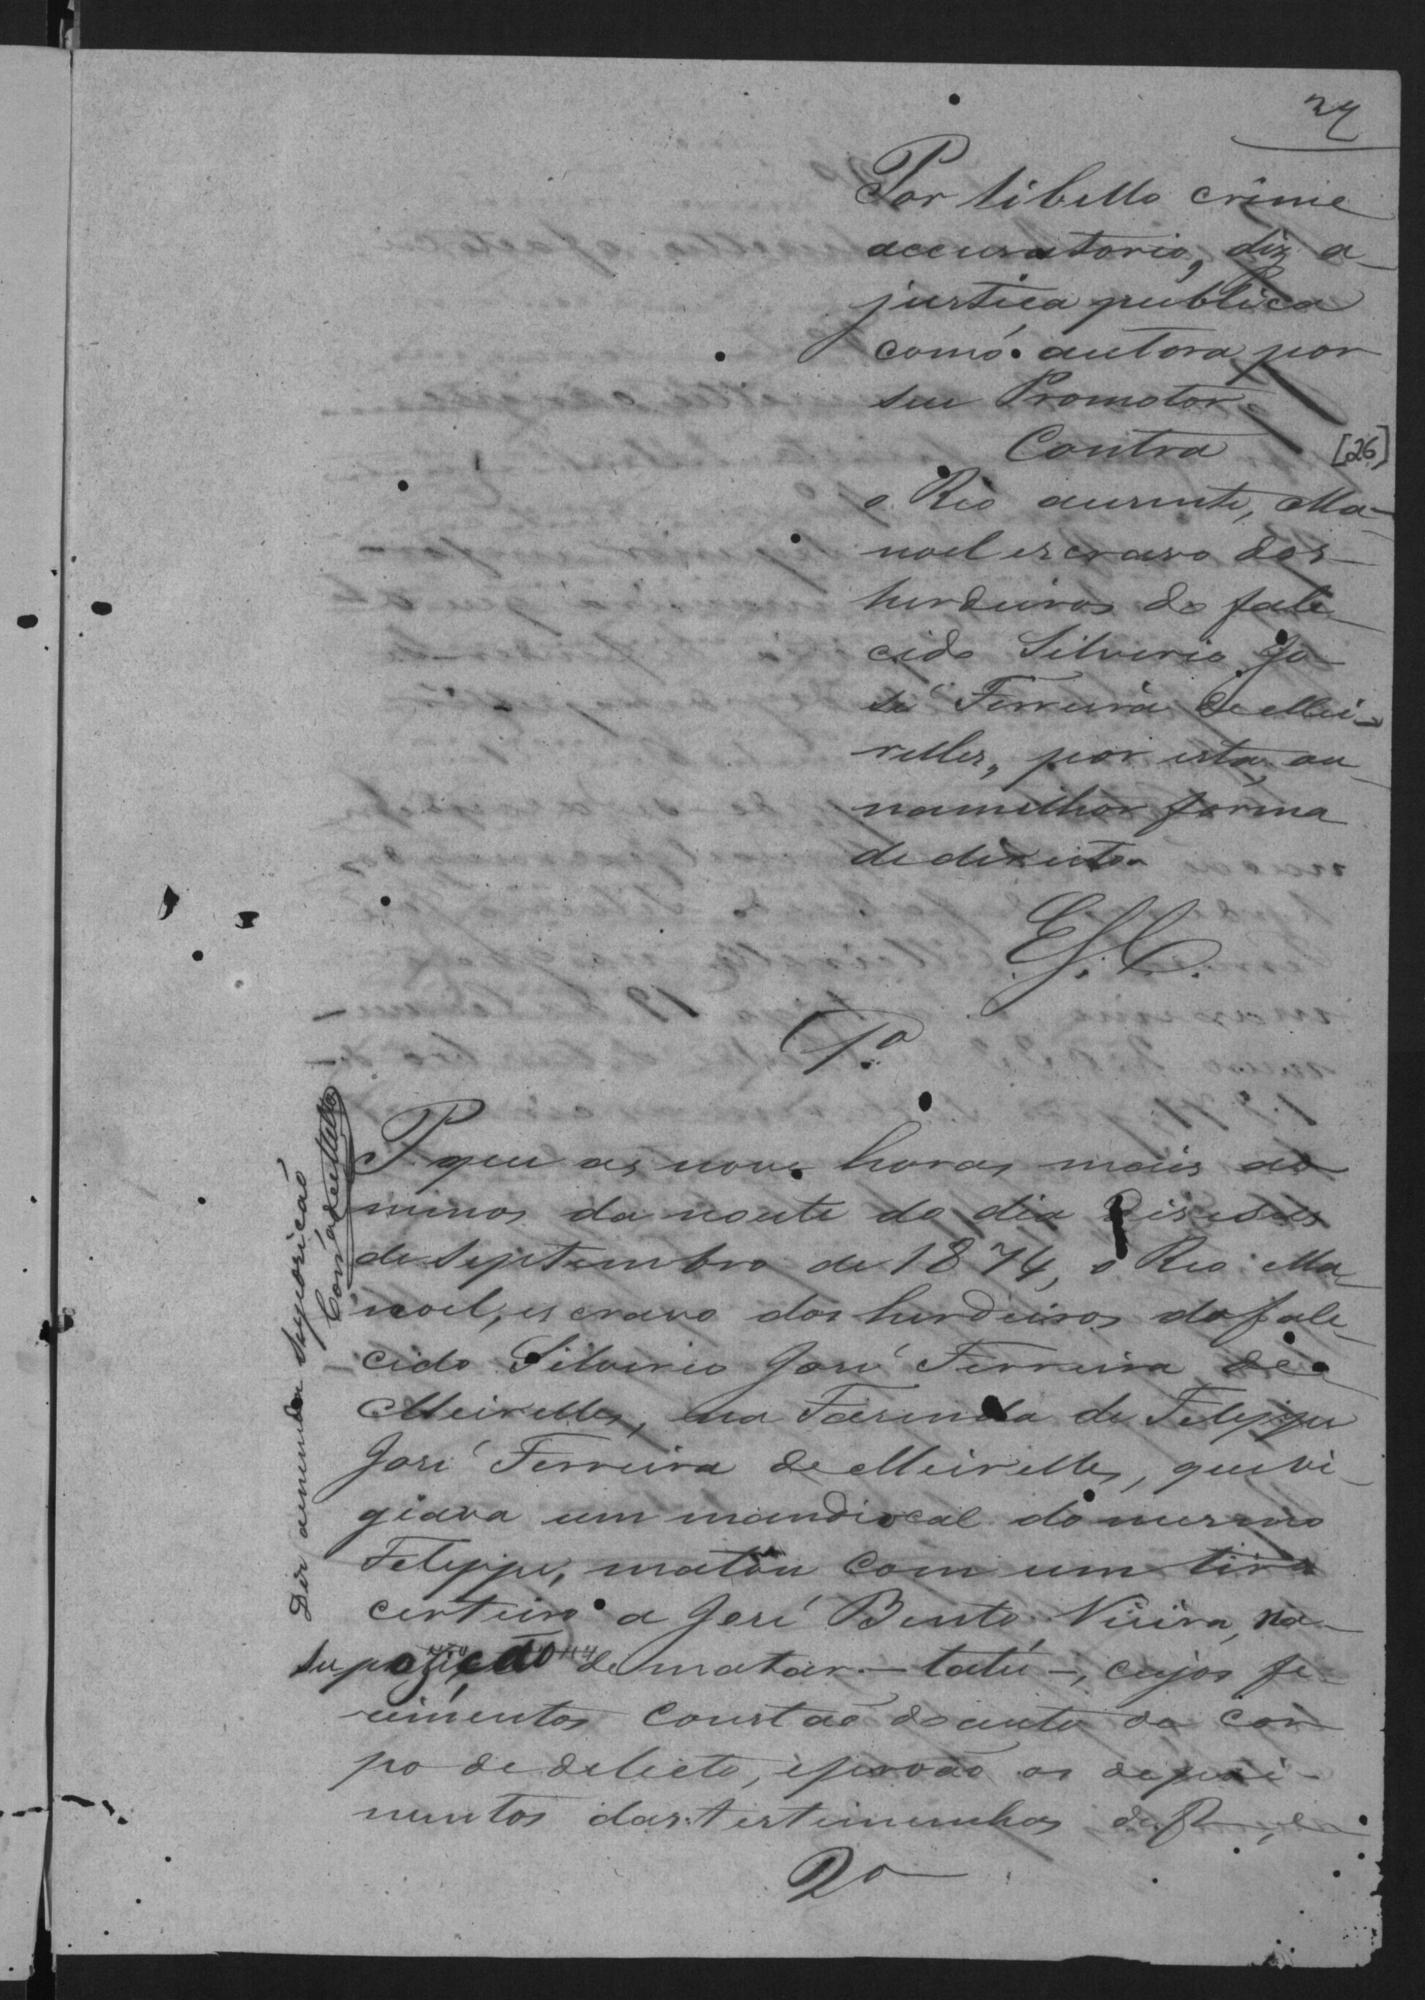 24
Por libello crime
accusatorio, diz a
justiça publica
como autora por
seu Promotor
Contra
[26]
o Reo ausente, Ma-
noel escravo dos
herdeiros do fale-
cido Silverio Jo-
sé Ferreira de Mei-
relles, por esta ou
na melhor forma
de direito
E. S. C.
1º
P. que as nove horas mais ou
menos da noute do dia Diseseis
de Septembro de 1874, o Reo Ma-
noel, escravo dos herdeiros do fale-
cido Silverio José Ferreira de
Meirelles, na Fasenda de Felippe
José Ferreira de Meirelles, que vi-
giava um mandiocal do mesmo
Felippe, matou com um tiro
certeiro a José Bento Vieira, na
supozição de matar - tatú -, cujos fe-
rimentos constão do auto de cor
po de delicto, e provão os depoi-
mentos das testimunhas de f
2º
Diz a emenda supozição